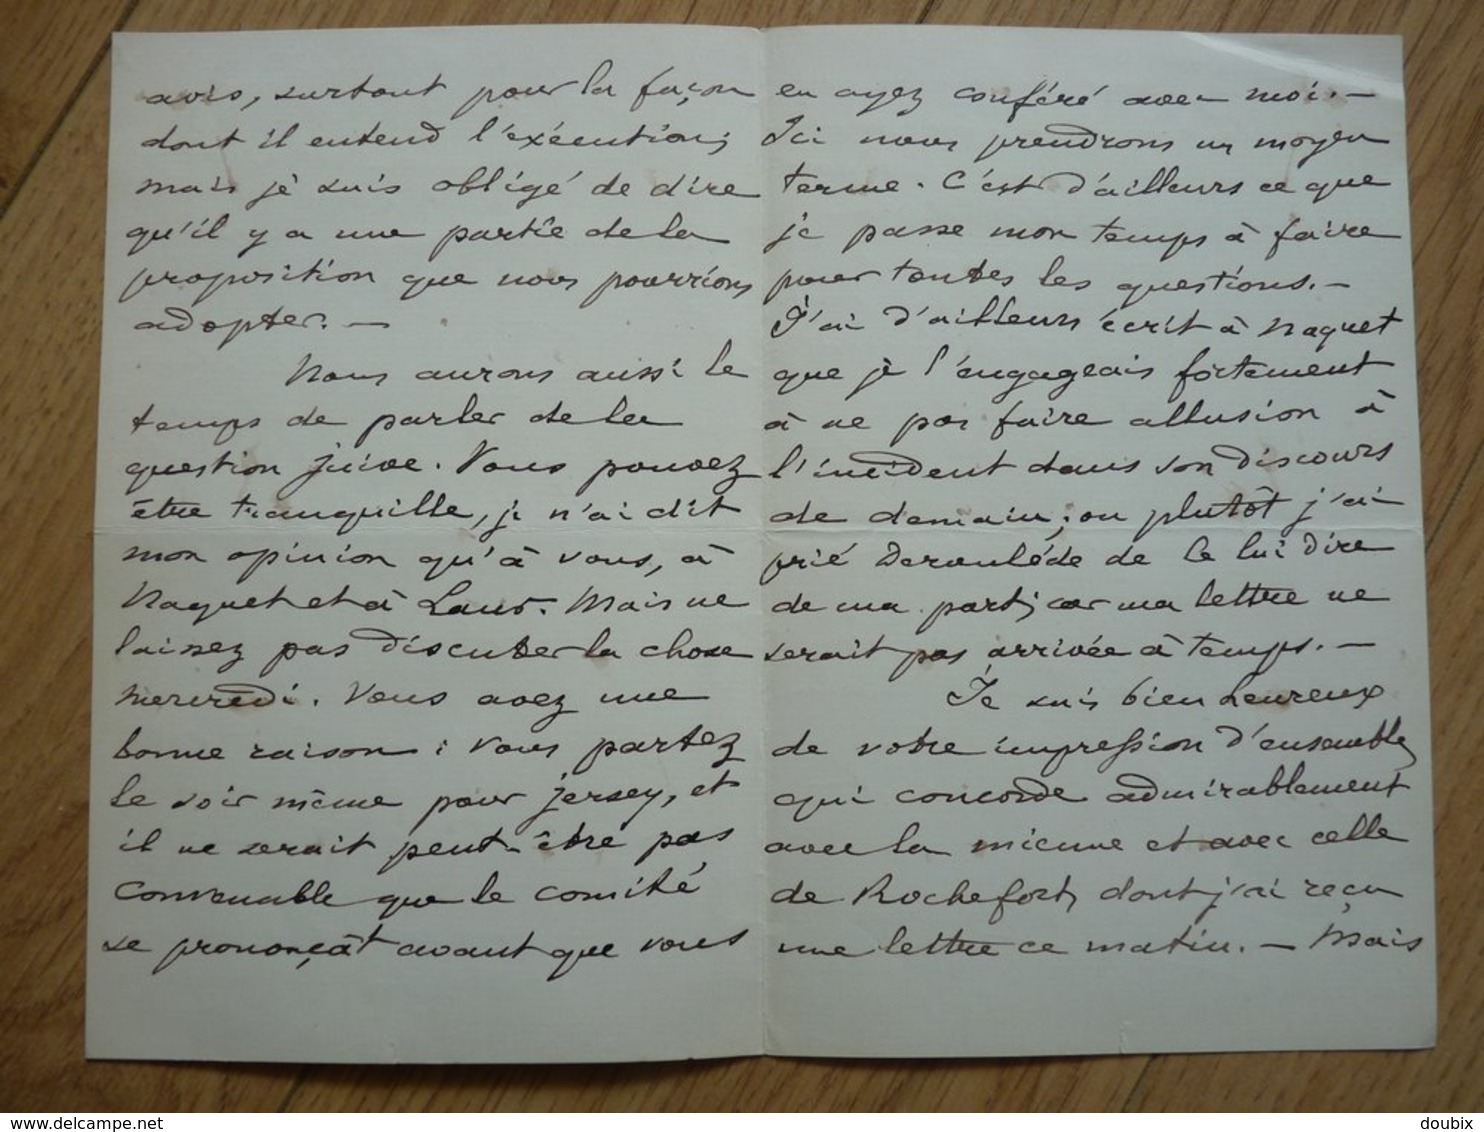 avis, surtout pour la façon
dont il entend l'exécution ;
mais je suis obligé de dire
qu'il y a une partie de la
proposition que nous pourrions
adopter. —
Nous aurons aussi le
temps de parler de la
question juive. Vous pouvez
être tranquille, je n'ai dit
mon opinion qu'à vous, à
Naquet et à Laur. Mais ne
laissez pas discuter la chose
mercredi. Vous avez une
bonne raison : vous partez
le soir même pour Jersey, et
il ne serait peut-être pas
convenable que le comité
se prononçât avant que vous
en ayez conféré avec moi. —
Ici nous prendrons un moyen
terme. C'est d'ailleurs ce que
je passe mon temps à faire
pour toutes les questions. —
J'ai d'ailleurs écrit à Naquet
que je l'engageais fortement
à ne pas faire allusion à
l'incident dans son discours
de demain ; ou plutôt j'ai
prié Deroulède de le lui dire
de ma part, car ma lettre ne
serait pas arrivée à temps. —
Je suis bien heureux
de votre impression d'ensemble,
qui concorde admirablement
avec la mienne et avec celle
de Rochefort, dont j'ai reçu
une lettre ce matin. — Mais
delcampe.net
doubix